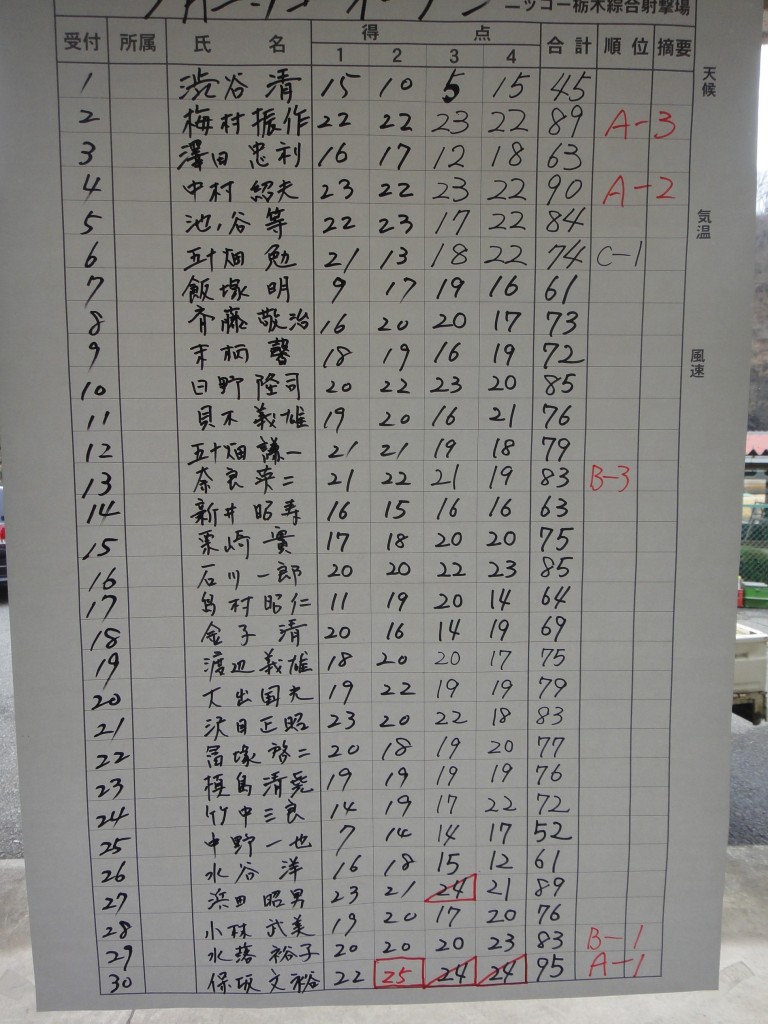 ニッコー栃木綜合射撃場
受付 所属 氏 名 得 点 合計 順位 摘要
1 2 3 4
天候
気温
風速
1 渋谷 清 15 10 5 15 45
2 梅村振作 22 22 23 22 89 A-3
3 澤田忠利 16 17 12 18 63
4 中村紹夫 23 22 23 22 90 A-2
5 池ノ谷 等 22 23 17 22 84
6 五十畑 勉 21 13 18 22 74 C-1
7 飯塚 明 9 17 19 16 61
8 斉藤敬治 16 20 20 17 73
9 末柄 馨 18 19 16 19 72
10 日野隆司 20 22 23 20 85
11 貝木義雄 19 20 16 21 76
12 五十畑謙一 21 21 19 18 79
13 奈良英二 21 22 21 19 83 B-3
14 新井昭寿 16 15 16 16 63
15 栗崎 實 17 18 20 20 75
16 石川一郎 20 20 22 23 85
17 島村昭仁 11 19 20 14 64
18 金子 清 20 16 14 19 69
19 渡辺義雄 18 20 20 17 75
20 大出国夫 19 22 19 19 79
21 沢田正昭 23 20 22 18 83
22 冨塚啓二 20 18 19 20 77
23 槙島清 19 19 19 19 76
24 竹中三良 14 19 17 22 72
25 中野一也 7 14 14 17 52
26 水谷 洋 16 18 15 12 61
27 浜田昭男 23 21 24 21 89
28 小林武美 19 20 17 20 76
29 水落裕子 20 20 20 23 83 B-1
30 保坂文裕 22 25 24 24 95 A-1